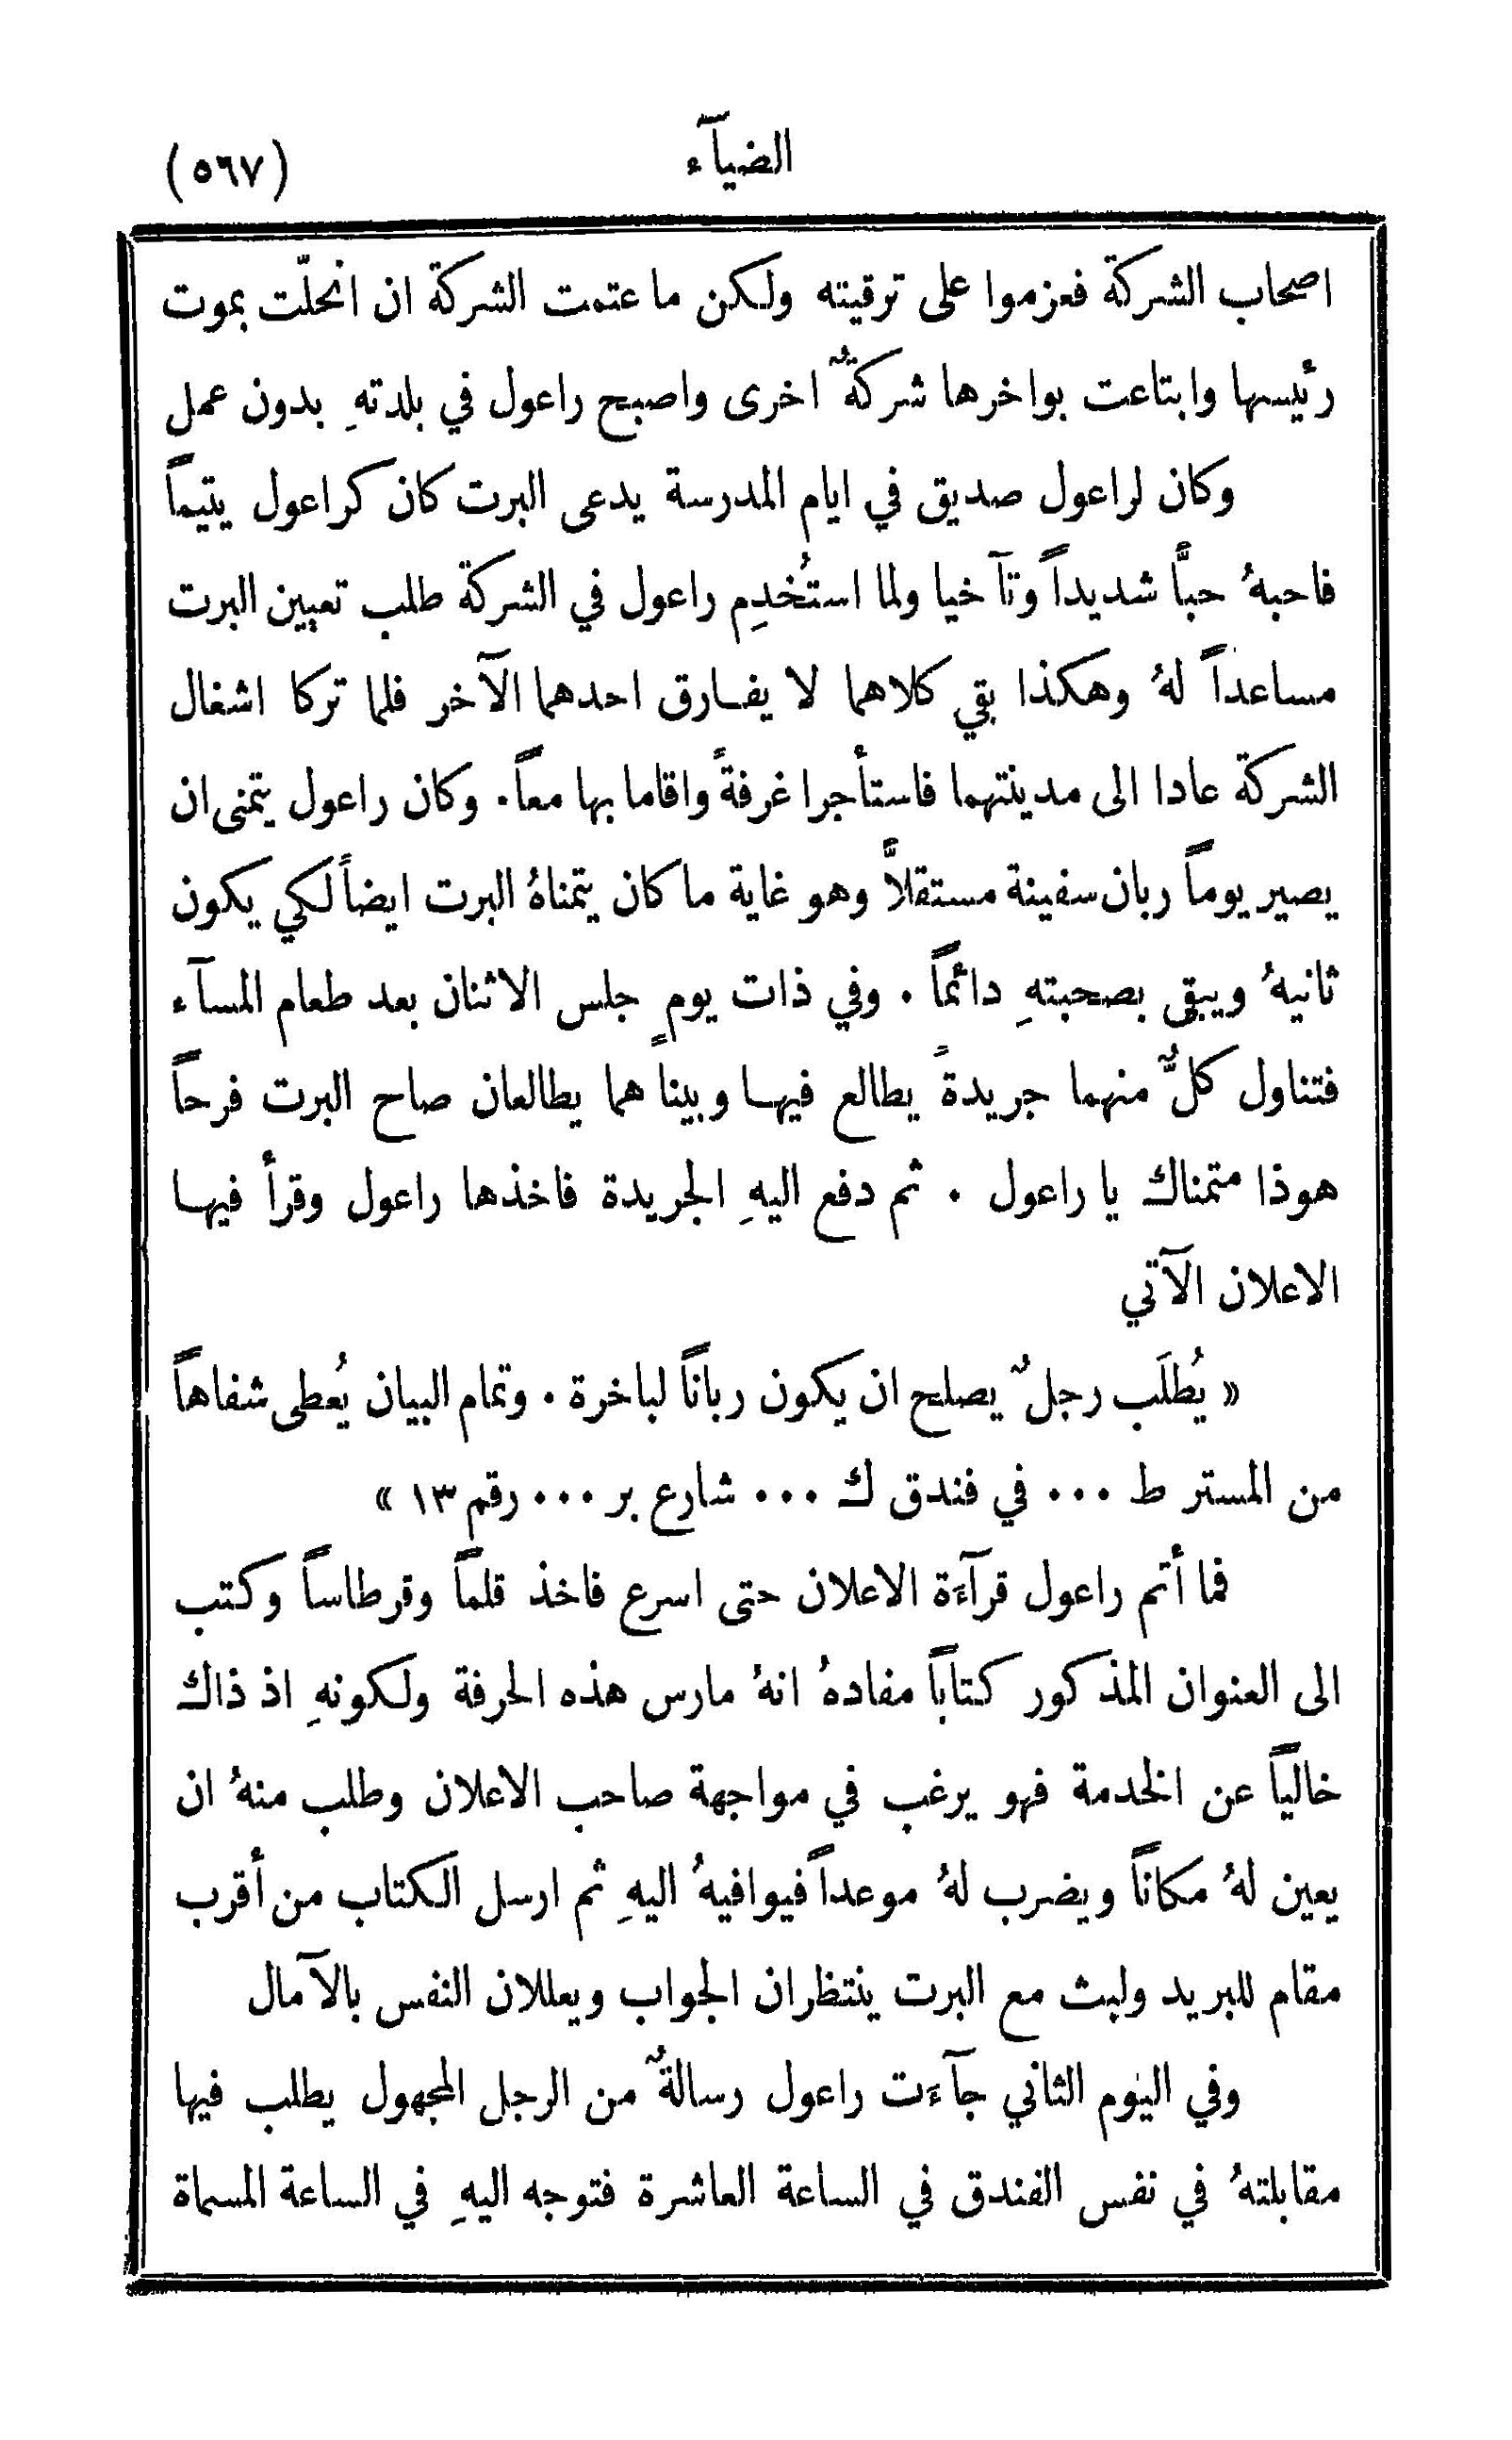 الضيآء
(٥٦٧)
اصحاب الشركة فعزموا على ترقيته ولكن ما عتمت الشركة ان انحلّت بموت
رئيسها وابتاعت بواخرها شركةٌ اخرى واصبح راعول في بلدتهِ بدون عمل
وكان لراعول صديق في ايام المدرسة يدعى البرت كان كراعول يتيماً
فاحبهُ حبًّا شديداً وتآخيا ولما استُخدِم راعول في الشركة طلب تعيين البرت
مساعداً لهُ وهكذا بقي كلاهما لا يفارق احدهما الآخر فلما تركا اشغال
الشركة عادا الى مدينتهما فاستأجرا غرفةً واقاما بها معاً. وكان راعول يتمنى ان
يصير يوماً ربان سفينة مستقلاًّ وهو غاية ما كان يتمناهُ البرت ايضاً لكي يكون
ثانيهُ ويبقى بصحبتهِ دائماً . وفي ذات يومٍ جلس الاثنان بعد طعام المسآء
فتناول كلٌّ منهما جريدةً يطالع فيها وبيناهما يطالعان صاح البرت فرحاً
هوذا متمناك يا راعول . ثم دفع اليهِ الجريدة فاخذها راعول وقرأ فيها
الاعلان الآتي
« يُطلَب رجلٌ يصلح ان يكون رباناً لباخرة . وتمام البيان يُعطى شفاهاً
من المستر ط ... في فندق ك ... شارع بر ... رقم ١٣ »
فما أتم راعول قرآءَة الاعلان حتى اسرع فاخذ قلماً وقرطاساً وكتب
الى العنوان المذكور كتاباً مفادهُ انهُ مارس هذه الحرفة ولكونهِ اذ ذاك
خالياً عن الخدمة فهو يرغب في مواجهة صاحب الاعلان وطلب منهُ ان
يعين لهُ مكاناً ويضرب لهُ موعداً فيوافيهُ اليهِ ثم ارسل الكتاب من أقرب
مقام للبريد ولبث مع البرت ينتظران الجواب ويعللان النفس بالآمال
وفي اليوم الثاني جآءَت راعول رسالةٌ من الرجل المجهول يطلب فيها
مقابلتهُ في نفس الفندق في الساعة العاشرة فتوجه اليهِ في الساعة المسماة